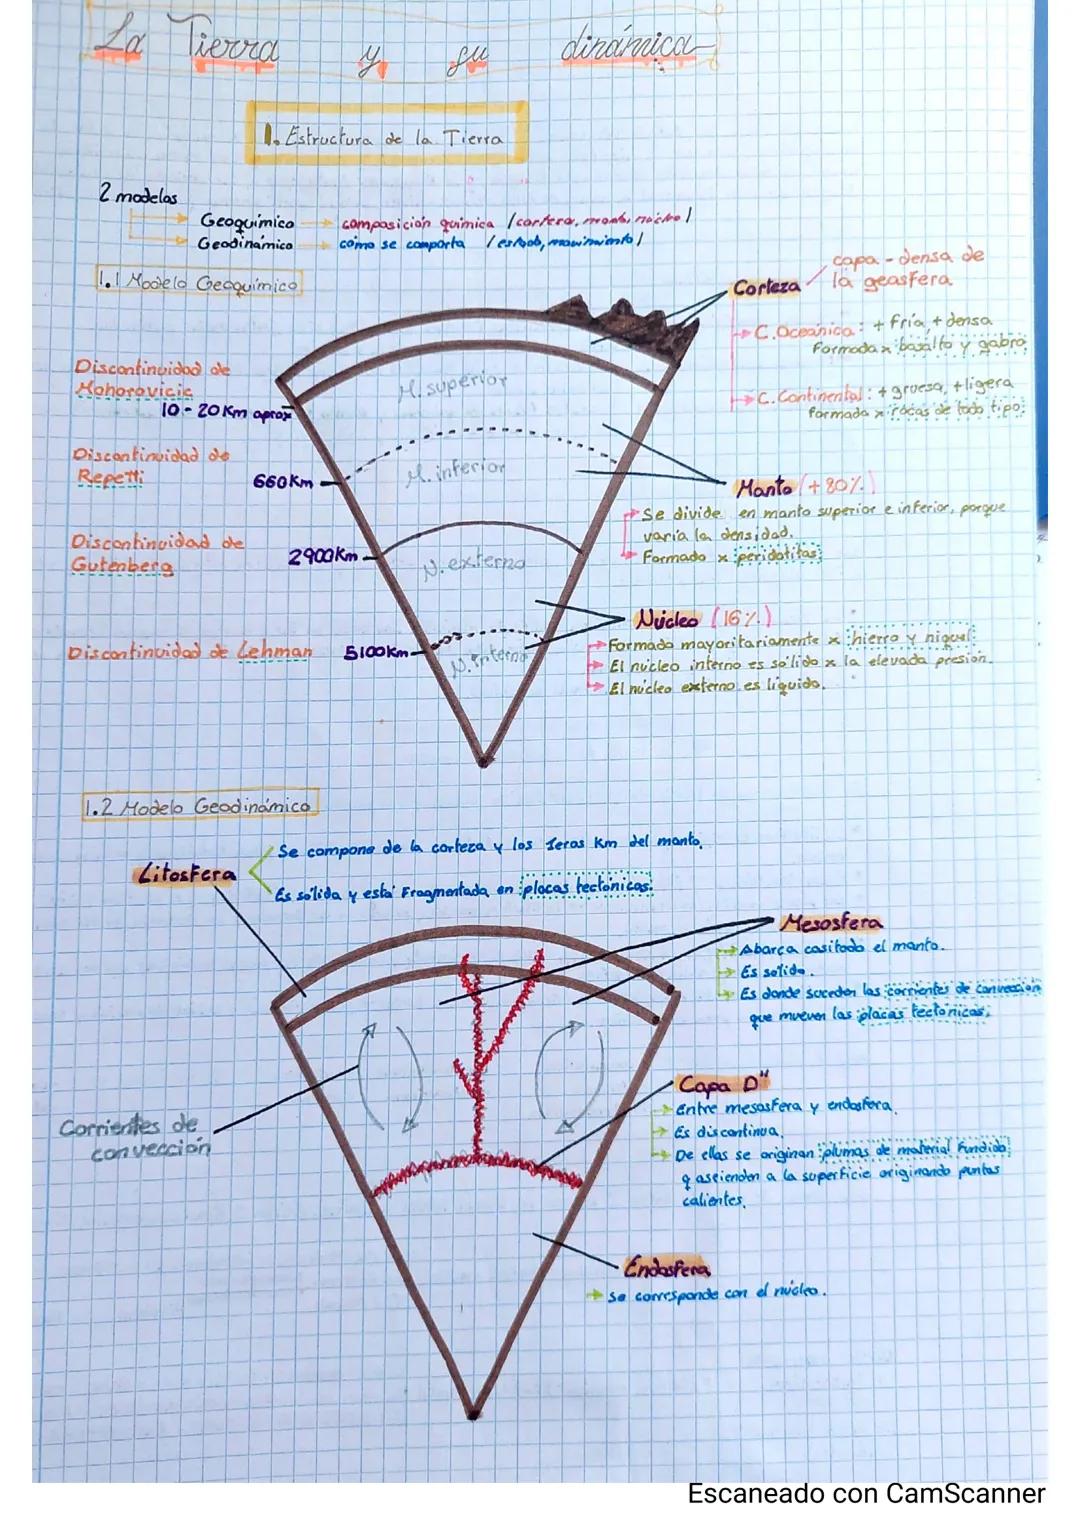 La Tierra y su dinámica
1. Estructura de la Tierra
2 modelos
Geoquímico → composición química /corteza, manto, núcleo/
Geodinámico → cómo se comporta /estado, movimiento/
1.1 Modelo Geoquímico
Corteza
capa - densa de
la geosfera
C. Oceánica: + fría, + densa
Formada x basalto y gabro
C. Continental: + gruesa, + ligera
formada x rocas de todo tipo.
Discontinuidad de
Mohorovicic
10 - 20 Km aprox
Discontinuidad de
Repetti
660 Km
Discontinuidad de
Gutenberg
2900 Km
Discontinuidad de Lehman
5100 Km
M. superior
M. inferior
N. externo
N. interno
Manto (+ 80%)
Se divide en manto superior e inferior, porque
varía la densidad.
Formado x peridotitas
Núcleo (16%)
Formado mayoritariamente x hierro y níquel.
El núcleo interno es sólido x la elevada presión.
El núcleo externo es líquido.
1.2 Modelo Geodinámico
Litosfera
Se compone de la corteza y los 1eros Km del manto.
Es sólida y está Fragmentada en placas tectónicas.
Mesosfera
Abarca casi todo el manto.
Es sólida.
Es donde suceden las corrientes de convección
que mueven las placas tectónicas.
Corrientes de
convección
Capa D"
Entre mesosfera y endosfera.
Es discontinua.
De ellas se originan plumas de material fundido
q ascienden a la superficie originando puntos
calientes.
Endosfera
Se corresponde con el núcleo.
Escaneado con CamScanner